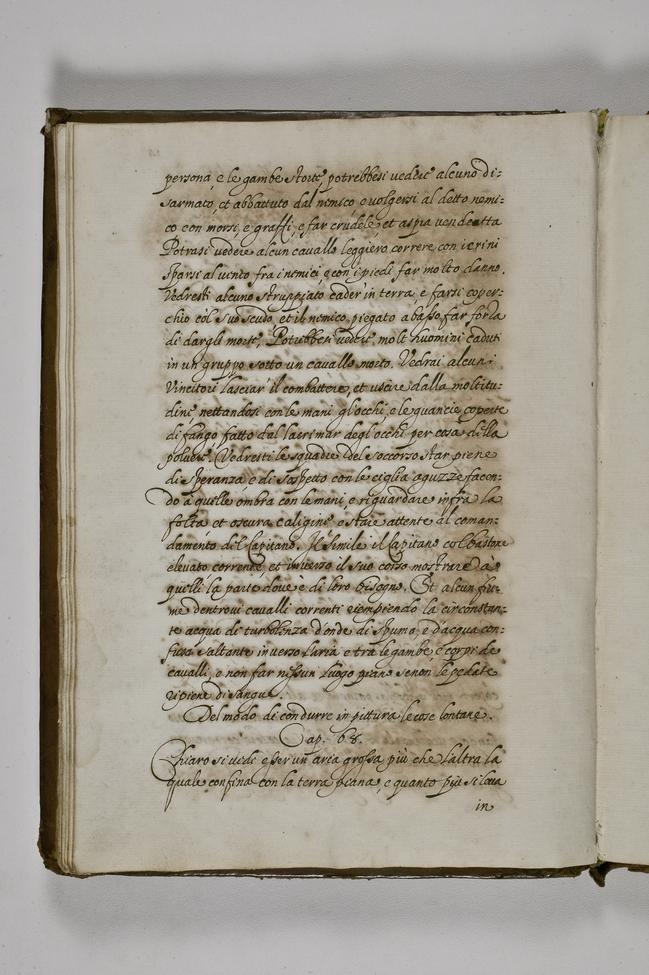 persona, e le gambe storte potrebbesi vedere alcuno di:
sarmato, et abbattuto dal nemico, e volgersi al detto nemi:
co con morsi, e graffi, e far crudele, et aspra vendetta
Potrasi vedere alcun cavallo leggiero correre con i crini
sparsi al vento fra i nemici, e con i piedi far molto danno.
Vedresti alcuno struppiato cader in terra, e farsi coper:
chio col suo scudo, et il nemico piegato a basso far forza
di dargli morte. Potrebbesi vedere molt'huomini caduti
in un gruppo sotto un cavallo morto. Vedrai alcuni
Vincitori lasciar il combattere, et uscire dalla moltitu:
dine nettandosi con le mani gl'occhi, e le guancie coperte
di fango fatto dal lacrimar degl'occhi per cosa della
polvere. Vedresti le squadre del soccorso star piene
di speranza, e di sospetto con le ciglia aguzze facen:
do à quelle ombra con le mani, e riguardare infra la
folta et oscura caligine e stare attente al coman:
damento del Capitano. Il simile il Capitano col bastone
elevato corrente, et inverso il suo corso mostrare à
quelli la parte dove è di loro bisogno. Et alcun fiu:
me dentrovi cavalli correnti riempiendo la circonstan:
te acqua di turbolenza d'onde di spuma, e d'acqua con:
fusa saltante inverso l'aria e tra le gambe, e corpi de
cavalli, e non far nissun luogo piano se non le pedate
ripiene di sangue.
Del modo di condurre in pittura le cose lontane.
Cap. 68.
Chiaro si vede esser un aria grossa più che l'altra la
quale confina con la terra piana, e quanto più si leva
in